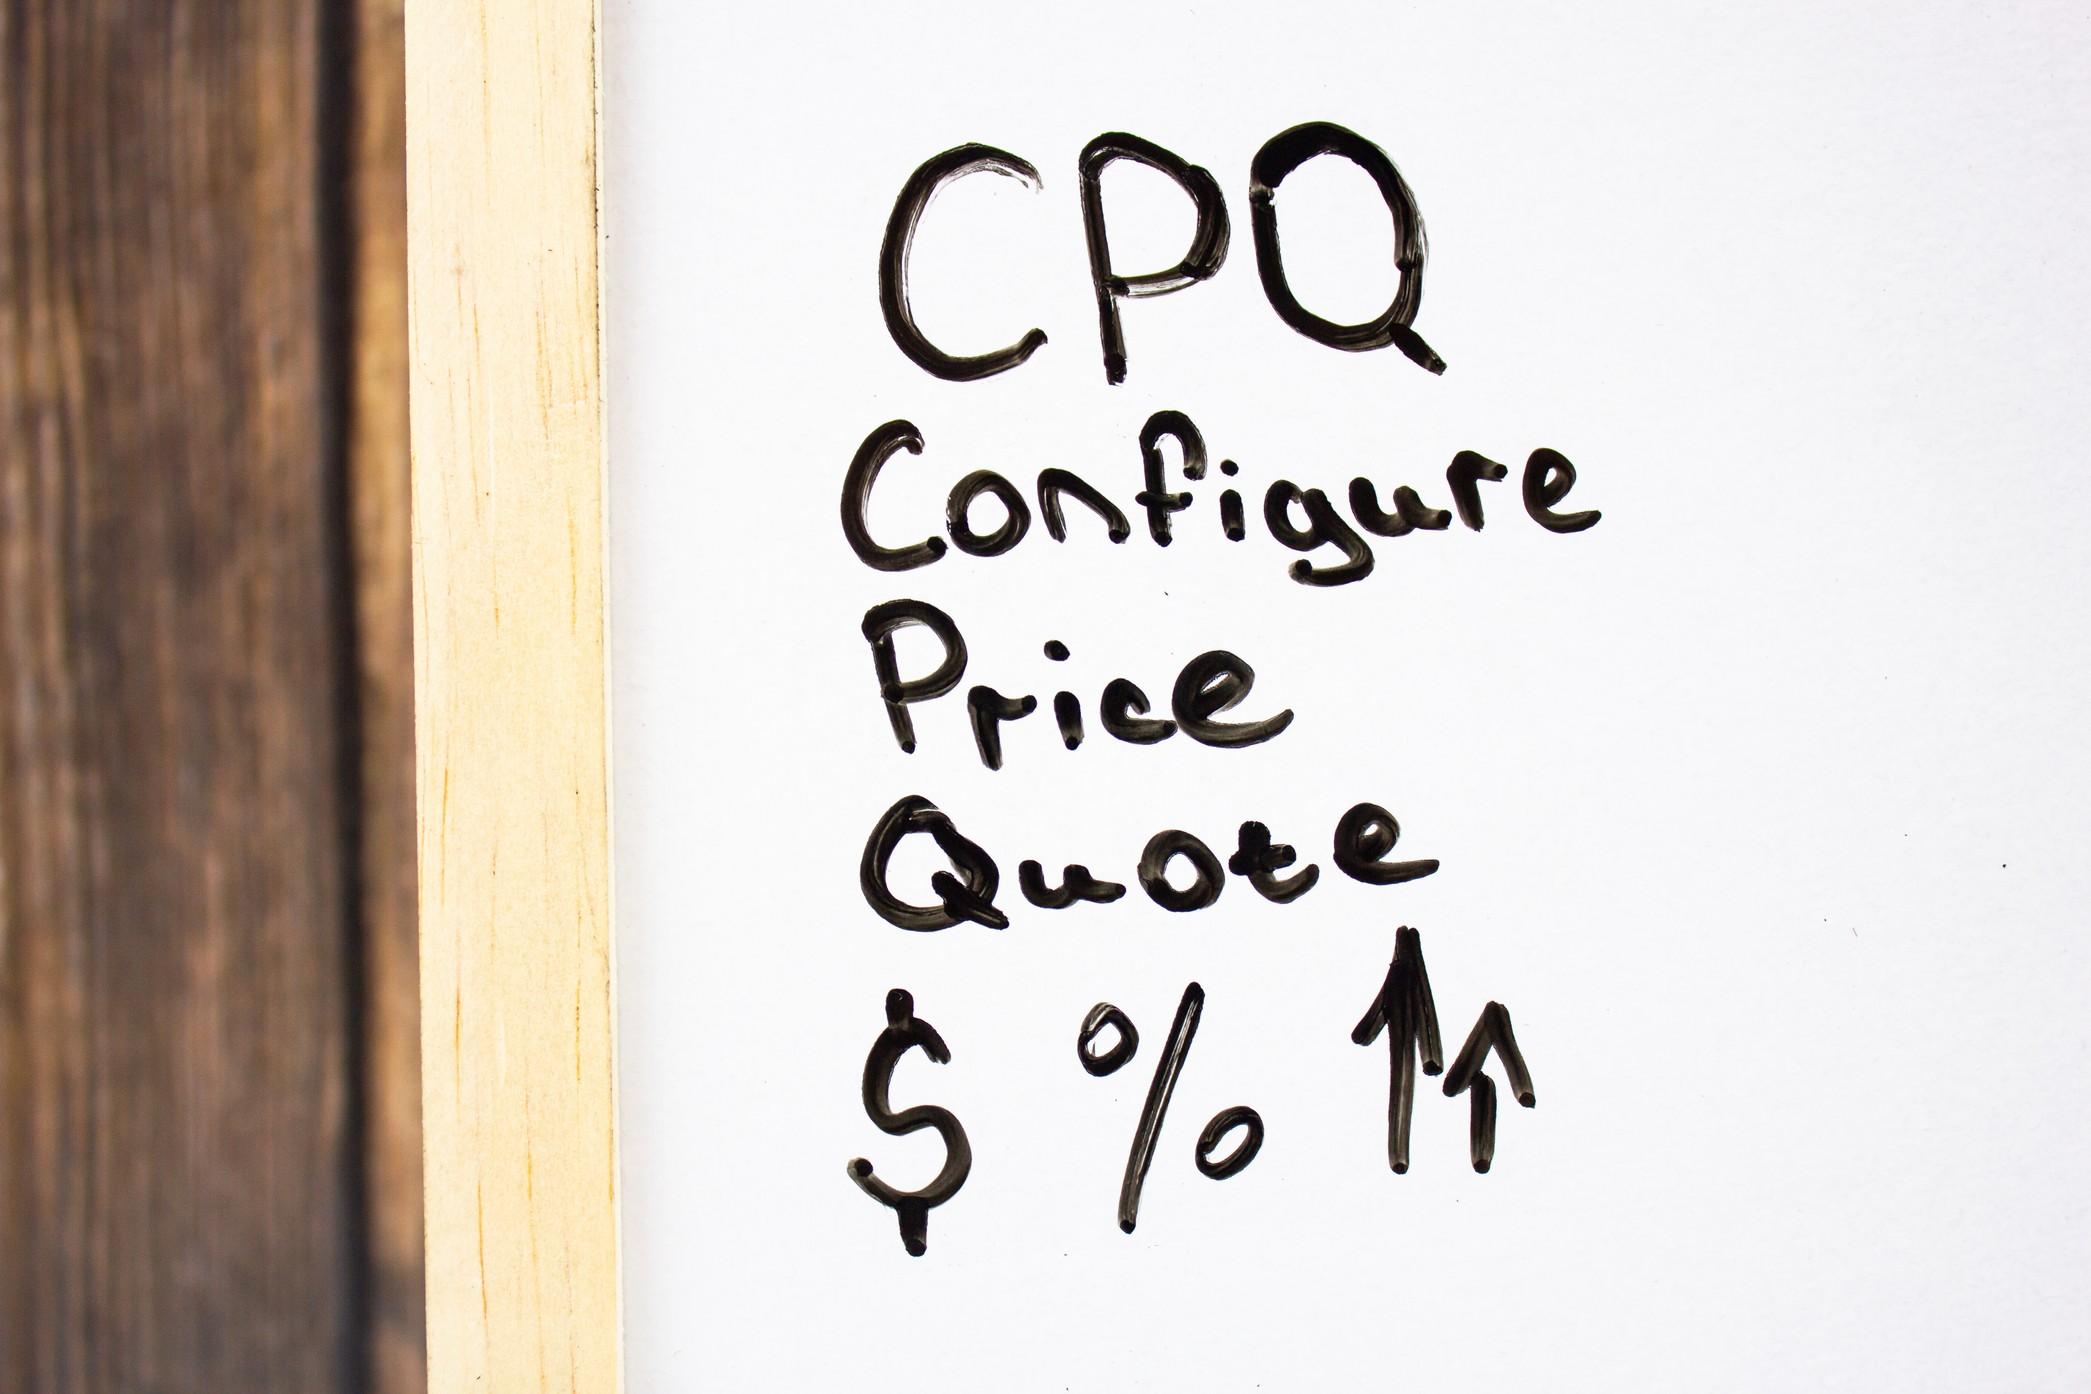 CPQ
Configure
Price
Quote
$ % ↑↑